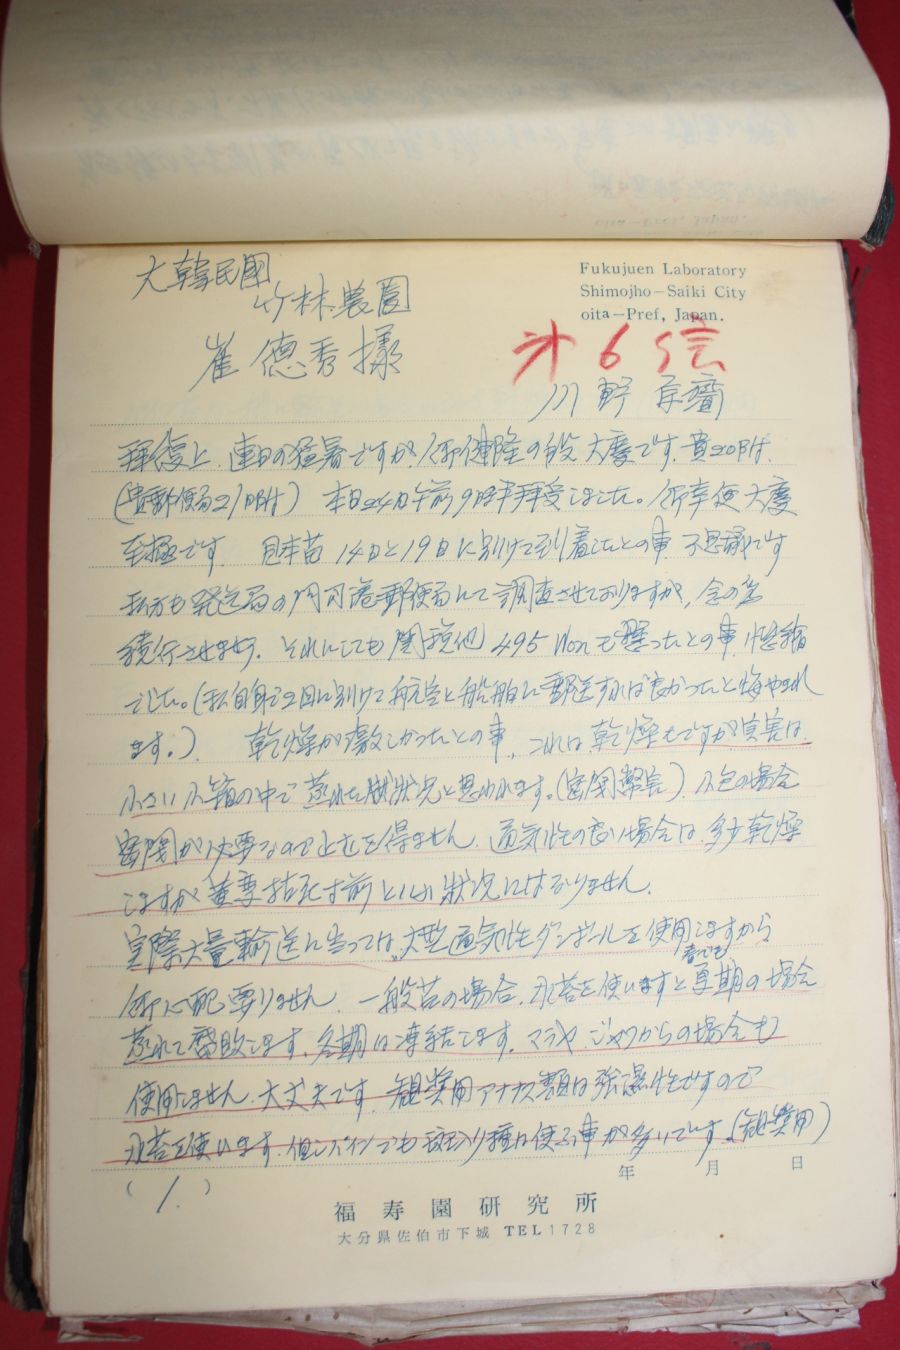 大韓民國
竹林農園
崔德秀様
Fukujuen Laboratory
Shimojho-Saiki City
oita-Pref, Japan.
才6信
川野
拝復 連日の猛暑ですが、御健隆の段大慶です。貴20日付、
(貴郵便局21日付) 本日24日午前9時半拝受しました。御幸便大慶
至極です 見本苗14日と19日に別けて到着したとの事 不思議です
私方も発送局の門司港郵便局にて調査させておりますが、念の為
続行させます。それにしても関税他 495 Won も
でした。(私自身で2回に別けて航空と船舶に郵送すれば良かったと悔やまれ
ます。) 乾燥が激しかったとの事、これは乾燥もですが実害は、
小さい小箱の中で蒸れた状況と思われます。(密閉弊害)、小包の場合
密閉が必要なので止むを得ません、通気性の良い場合は、多少乾燥
しますが 枯死寸前という状況にはなりません。
実際大量輸送に当っては、大型通気性ダンボールを使用しますから
御心配要りません、一般苗の場合、水苔を使いますと春でも夏期の場合
蒸れて腐敗します、冬期は凍結します。マラヤ、ジャワからの場合も
使用しません、大丈夫です、観賞用アナナス類は強湿性ですので
水苔を使います、但しパインでも斑入り種は使ふ事が多いです、(観賞用)
年 月 日
(1.)
福寿園研究所
大分県佐伯市下城 TEL 1728